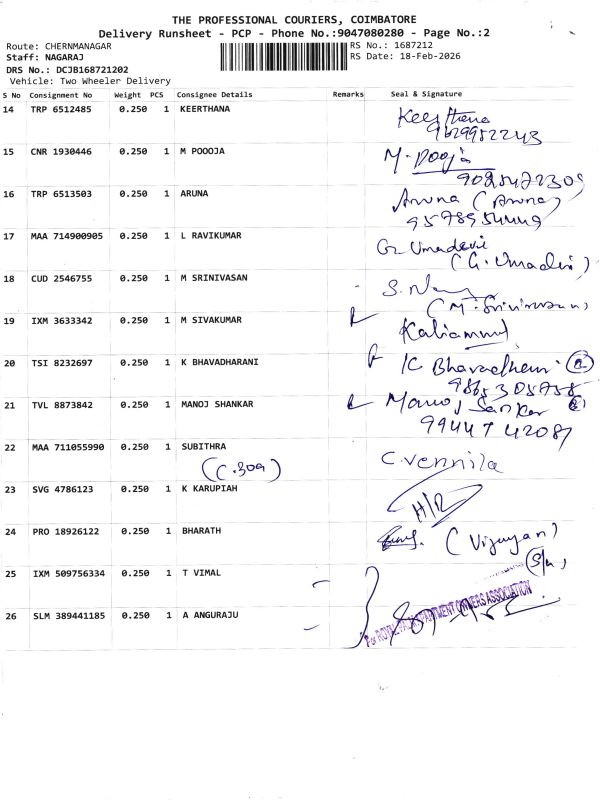 THE PROFESSIONAL COURIERS, COIMBATORE
Delivery Runsheet - PCP - Phone No.:9047080280 - Page No.:2
Route: CHERNMANAGAR
RS No.: 1687212
Staff: NAGARAJ
RS Date: 18-Feb-2026
DRS No.: DCJB168721202
Vehicle: Two Wheeler Delivery
S No Consignment No Weight PCS Consignee Details Remarks Seal & Signature
14 TRP 6512485 0.250 1 KEERTHANA Keerthana
15 CNR 1930446 0.250 1 M POOOJA M. Pooja
9025472309
16 TRP 6513503 0.250 1 ARUNA Aruna (Aruna)
17 MAA 714900905 0.250 1 L RAVIKUMAR G. Umadevi
(G. Umadevi)
18 CUD 2546755 0.250 1 M SRINIVASAN
(M. Srinivasan)
19 IXM 3633342 0.250 1 M SIVAKUMAR Kaliammal
20 TSI 8232697 0.250 1 K BHAVADHARANI K Bhavadharani
9865305758
21 TVL 8873842 0.250 1 MANOJ SHANKAR Manoj Sankar
9944742087
22 MAA 711055990 0.250 1 SUBITHRA C. Vennila
(C.309)
23 SVG 4786123 0.250 1 K KARUPIAH H/R
24 PRO 18926122 0.250 1 BHARATH (Vijayan)
25 IXM 509756334 0.250 1 T VIMAL
26 SLM 389441185 0.250 1 A ANGURAJU
OWNERS ASSOCIATION